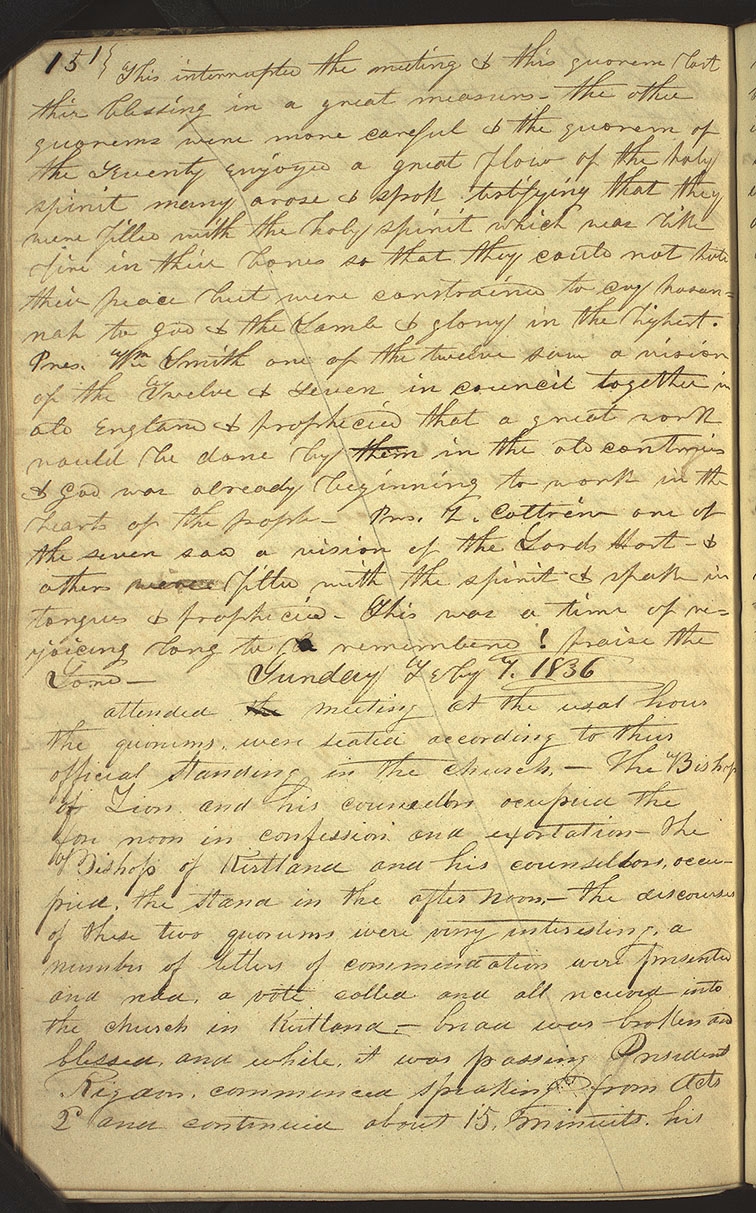 151}
This interrupted the meeting & this quorem lost
thir blessing in a great measure – the other
quorems were more careful & the quorem of
the Seventy enjoyed a great flow of the holy
spirit many arose & spok testifying that they
were filled with the holy spirit which was like
fire in their bones so that they could not hold
their peace but were constrained to cry hosan=
nah to god & the Lamb & glory in the highest.
Pres. Wm Smith one of the twelve saw a vision
of the Twelve & Seven in council together in
old England & prophecied that a great work
would be done by them in the old contries
& god was already beginning to work in the
hearts of the people – Pres. Z. Coltrin one of
the seven saw a vision of the Lords Host – &
others were filled with the spirit & speak in
tongues & prophecied – This was a time of re=
joicing long to be remembered ! praise the
Lord –
Sunday Feby 7. 1836
attended the meeting at the usal hour
the quorums, were seated according to their
official standing in the church, – The Bishop
of Zion and his counsellors ocupied the
fore noon in confession and exortation – The
Bishop of Kirtland and his counsellors, occu-
pied, the stand in the after noon, – the discourses
of these two quorums were very interesting, a
number of letters of commendation were presented
and read, a vote called and all recieved into
the church in Kirtland, – bread was broken and
blessed, and while, it was passing President
Rigdon, commenced speaking from Acts
2d and continued about 15, minuets, his